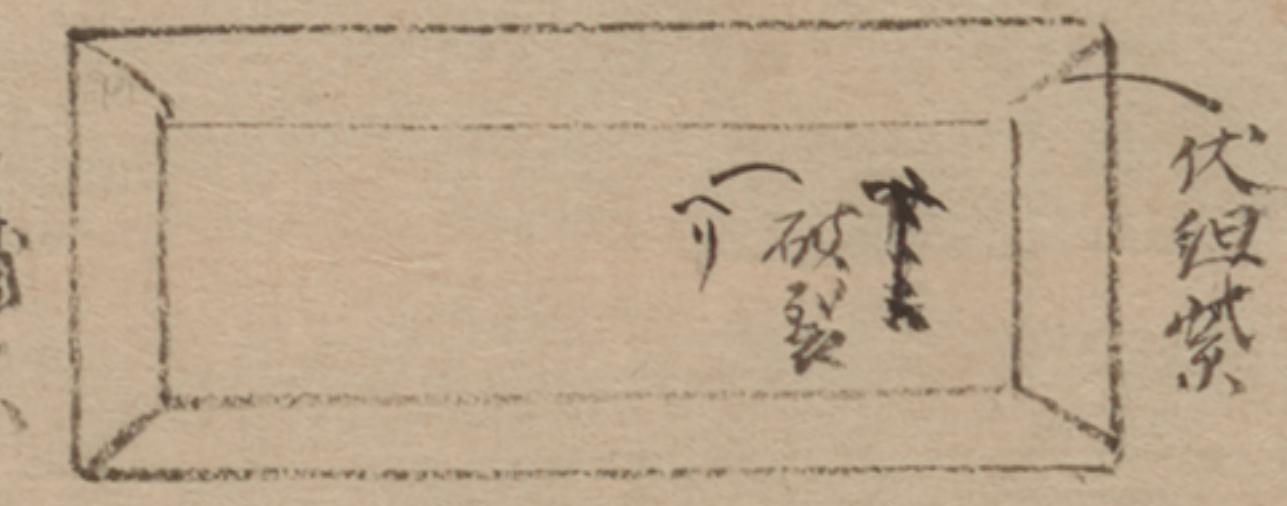 伏組紫
破裂
ヘリ